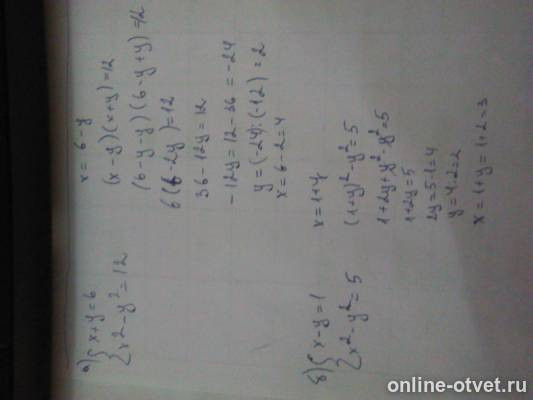 а) { x+y=6
x² - y² = 12
x = 6 - y
(x-y)(x+y)=12
(6-y-y)(6-y+y)=12
6(6-2y)=12
36-12y=12
-12y=12-36=-24
y=(-24):(-12)=2
x=6-2=4
б) { x-y=1
x² - y² = 5
x=1+y
(1+y)² - y² = 5
1+2y+y² - y² = 5
1+2y=5
2y=5-1=4
y=4:2=2
x=1+y=1+2=3
online-otvet.ru